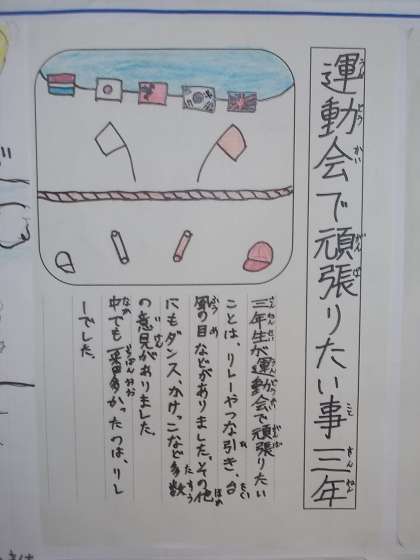 運動会で頑張りたい事 三年
三年生が運動会で頑張りたい
ことは、リレーやつな引き、台
風の目などがありました。その他
にもダンス、かけっこなど多数
の意見がありました。
中でも一番多かったのは、リレ
ーでした。